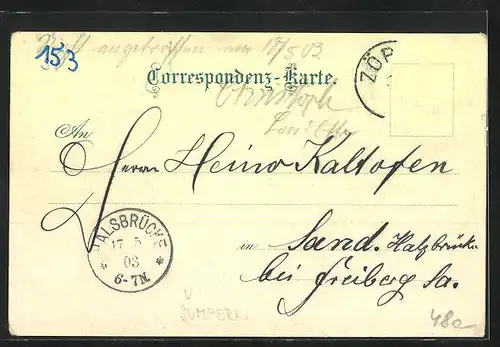 Nicht angetroffen am 17/5 03
153
ZÖP
Correspondenz-Karte.
An
Herrn Heino Kaltofen
HALSBRÜCKE
17 5
03
6-7N.
in Sand. Halsbrücke
bei Freiberg Sa.
ŠUMPERK
480